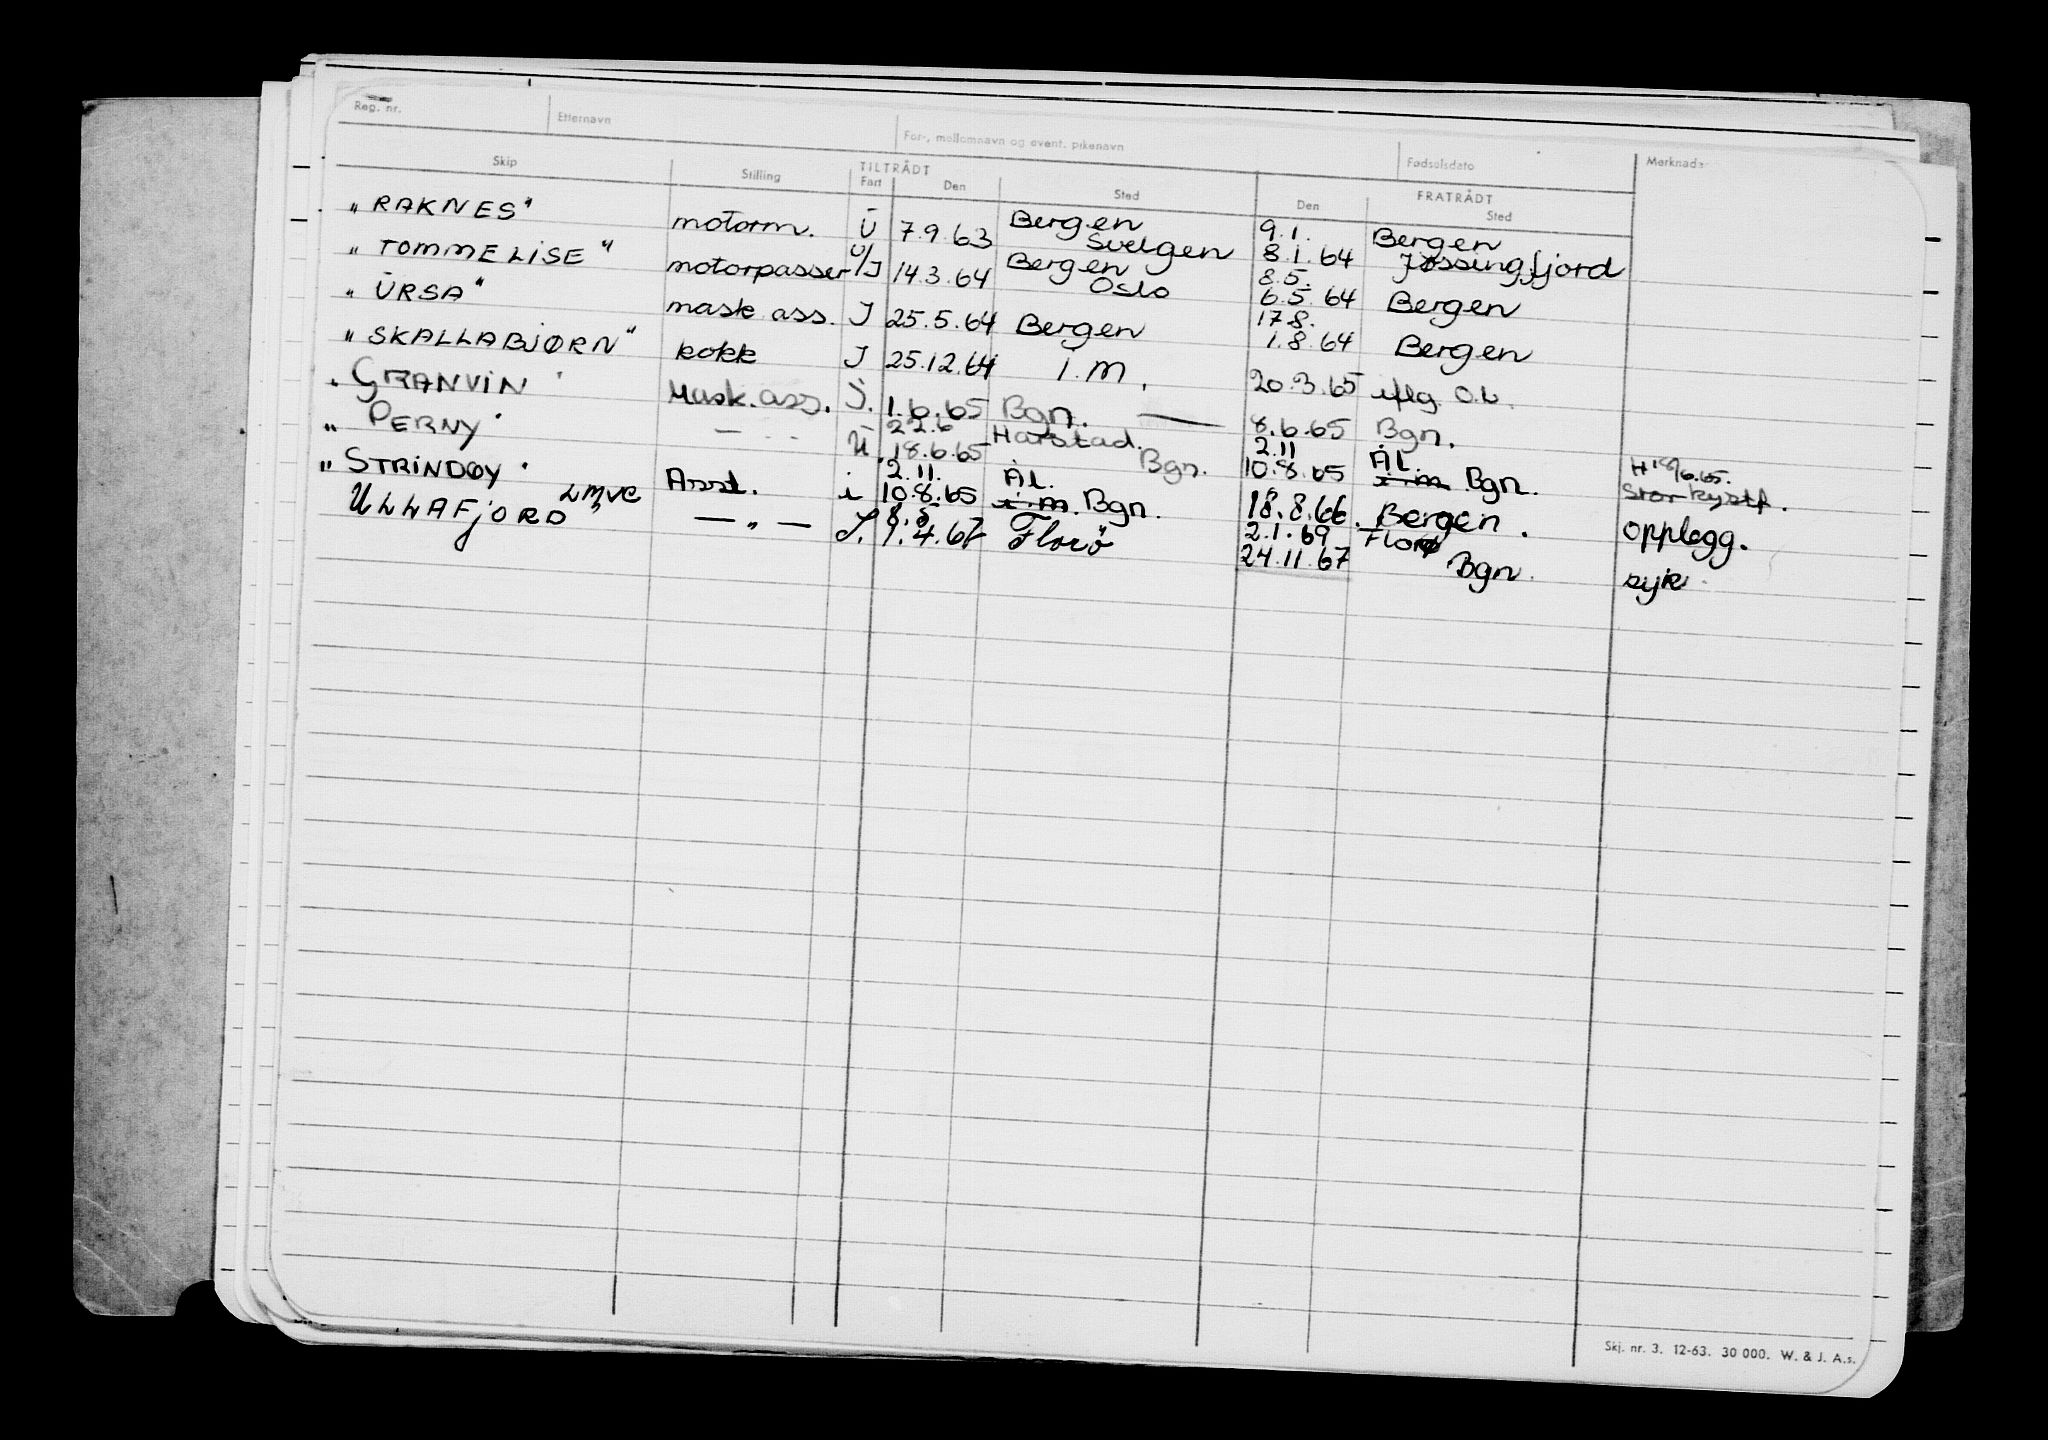 Reg. nr. Etternavn For-, mellomnavn og event. pikenavn Fødselsdato Merknader
Skip Stilling TILTRÅDT FRATRÅDT
Fart Den Sted Den Sted
"RAKNES" motorm. U 7.9.63 Bergen Svelgen 9.1. 8.1.64 Bergen Jøssingfjord
"TOMMELISE" motorpasser U/J 14.3.64 Bergen Oslo 8.5. 6.5.64 Bergen
"URSA" mask ass. J 25.5.64 Bergen 17.8. 1.8.64 Bergen
"SKALLABJØRN" kokk J 25.12.64 i.m. 20.3.65 iflg. O.b.
"GRANVIN" Mask.ass. J. 1.6.65 Bgn. — 8.6.65 Bgn.
"PERNY" — " — U. 22.6 18.6.65 Harstad. Bgn. 2.11 10.8.65 ÅL. i.m. Bgn. H 18/6.65. Stor kystf.
"STRINDØY" Asst. i 2.11. 10.8.65 ÅL. i.m. Bgn. 18.8.66. Bergen. opplegg.
ULLAFJORD" LMVC — " — J. 8.5 1.4.67 Florø 2.1.69 24.11.67 Florø Bgn. syk
Skj. nr. 3. 12-63. 30 000. W. & J. A.s.